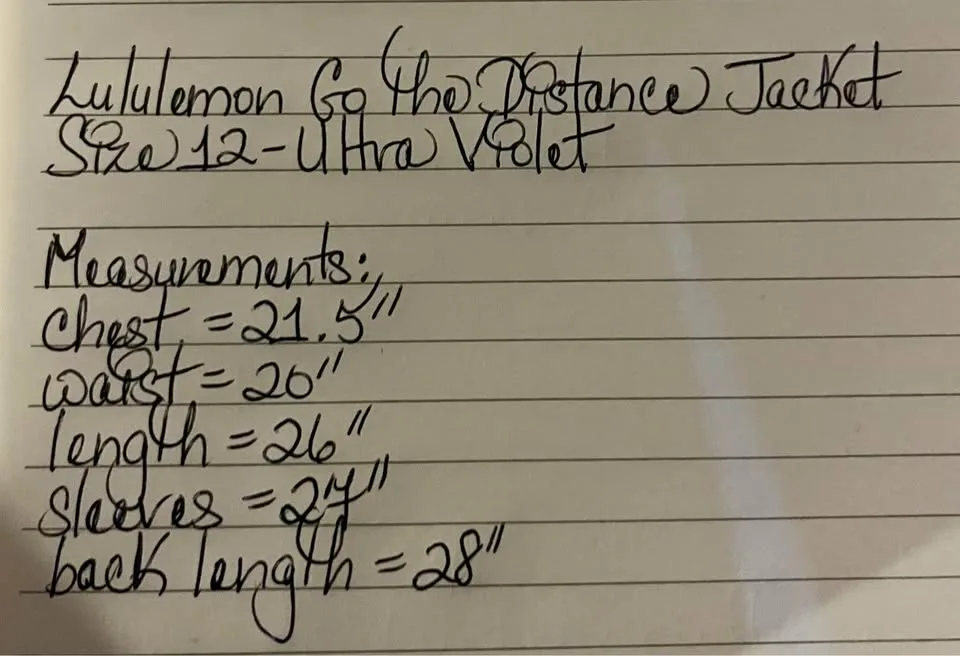 Lululemon Go the Distance Jacket
Size 12-Ultra Violet
Measurements:
chest = 21.5"
waist = 20"
length = 26"
sleeves = 27"
back length = 28"